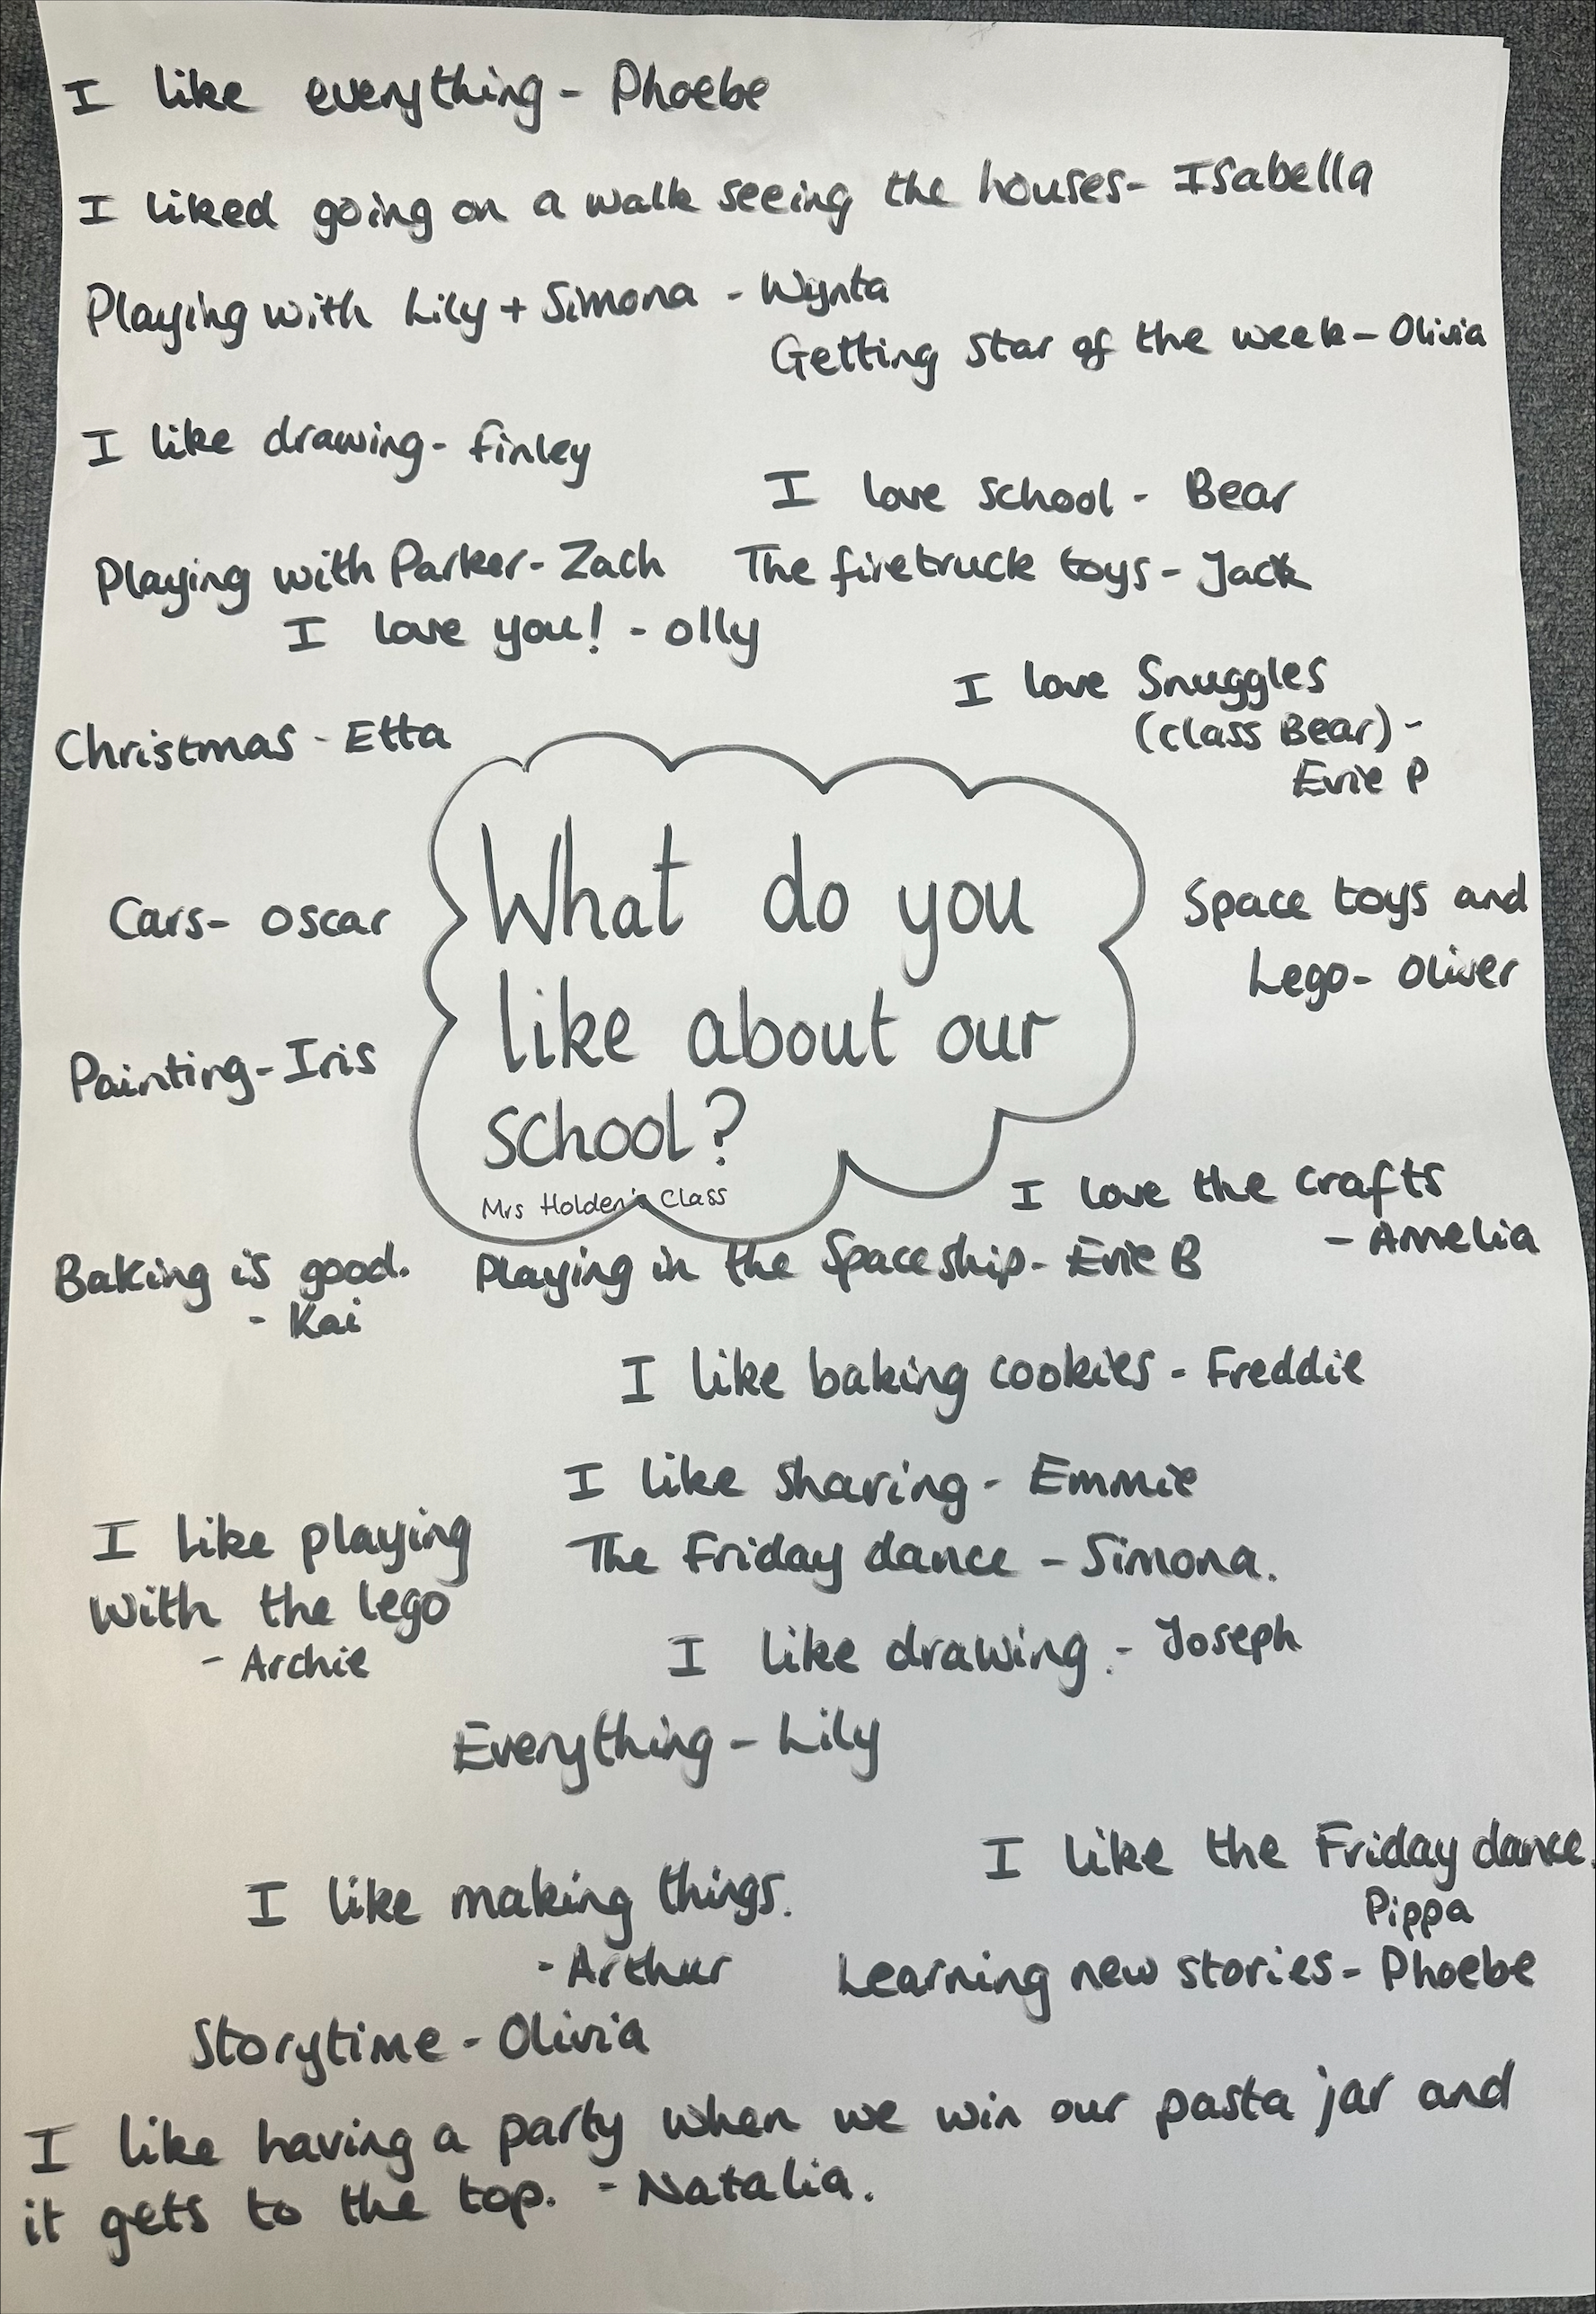 I like everything - Phoebe
I liked going on a walk seeing the houses - Isabella
Playing with Lily + Simona - Wynta
Getting star of the week - Olivia
I like drawing - finley
I love school - Bear
Playing with Parker - Zach
The firetruck toys - Jack
I love you! - olly
I love Snuggles
(class Bear) -
Evie P
Christmas - Etta
What do you
like about our
school?
Mrs Holden's Class
Cars - Oscar
Space toys and
Lego - Oliver
Painting - Iris
I love the crafts
- Amelia
Baking is good.
- Kai
Playing in the Spaceship - Evie B
I like baking cookies - Freddie
I like sharing - Emmie
I like playing
with the lego
- Archie
The Friday dance - Simona.
I like drawing. - Joseph
Everything - Lily
I like the Friday dance.
Pippa
I like making things.
- Arthur
Learning new stories - Phoebe
Storytime - Olivia
I like having a party when we win our pasta jar and
it gets to the top. - Natalia.